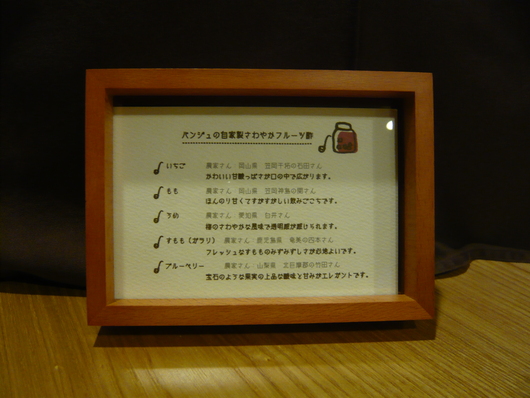 ペンジュの自家製さわやかフルーツ酢
いちご 農家さん 岡山県 笠岡干拓の石田さん
かわいい甘酸っぱさが口の中で広がります。
もも 農家さん 岡山県 笠岡神島の関さん
ほんのり甘くてすがすがしい飲みごこちです。
うめ 農家さん 愛知県 白井さん
梅のさわやかな風味で透明感が感じられます。
すもも(ガラリ) 農家さん 鹿児島県 奄美の四本さん
フレッシュなすもものみずみずしさが心地よいです。
ブルーベリー 農家さん 山梨県 北巨摩郡の竹田さん
宝石のような果実の上品な酸味と甘みがエレガントです。